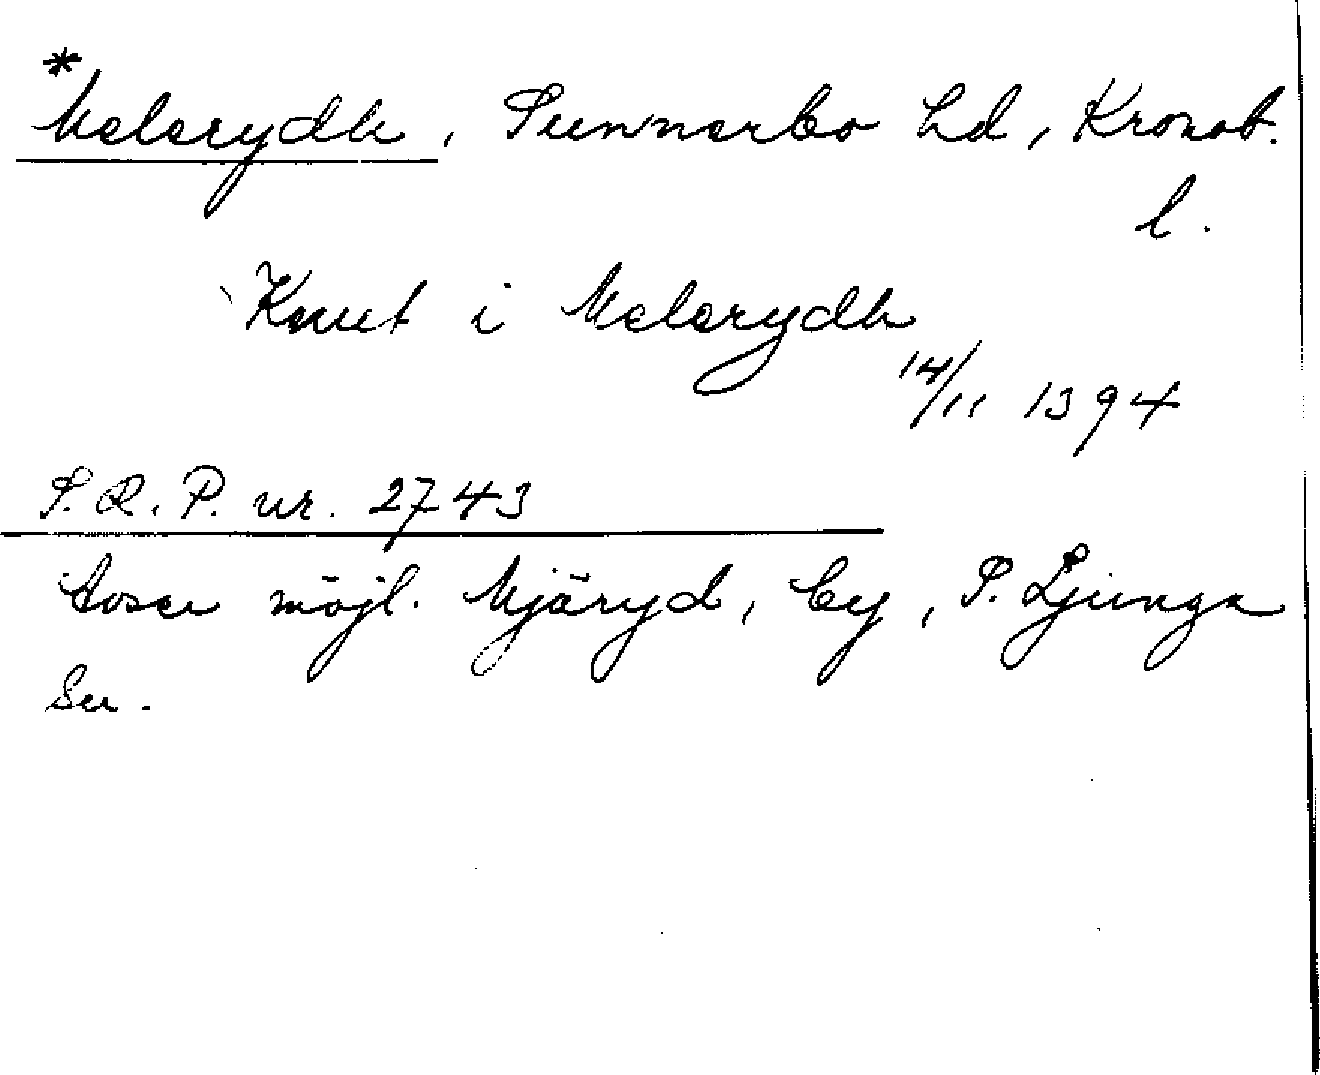 *Melerydh, Sunnerbo hd, Kronob.
l.
Knut i Melerydh
14/11 1394
S.R.P. nr. 2743
Avser möjl. Mjäryd, by, S. Ljunga
sn.